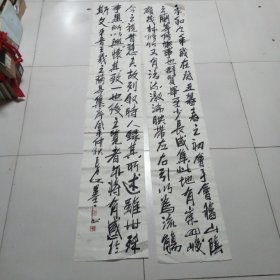 永和九年歲在癸丑暮春之初會于會稽山陰
之蘭亭修禊事也群賢畢至少長咸集此地有崇山峻
嶺茂林修竹又有清流激湍映帶左右引以為流觴
今之視昔悲夫故列叙時人錄其所述雖世殊
事異所以興懷其致一也後之覽者亦將有感於
斯文王羲之蘭亭集序